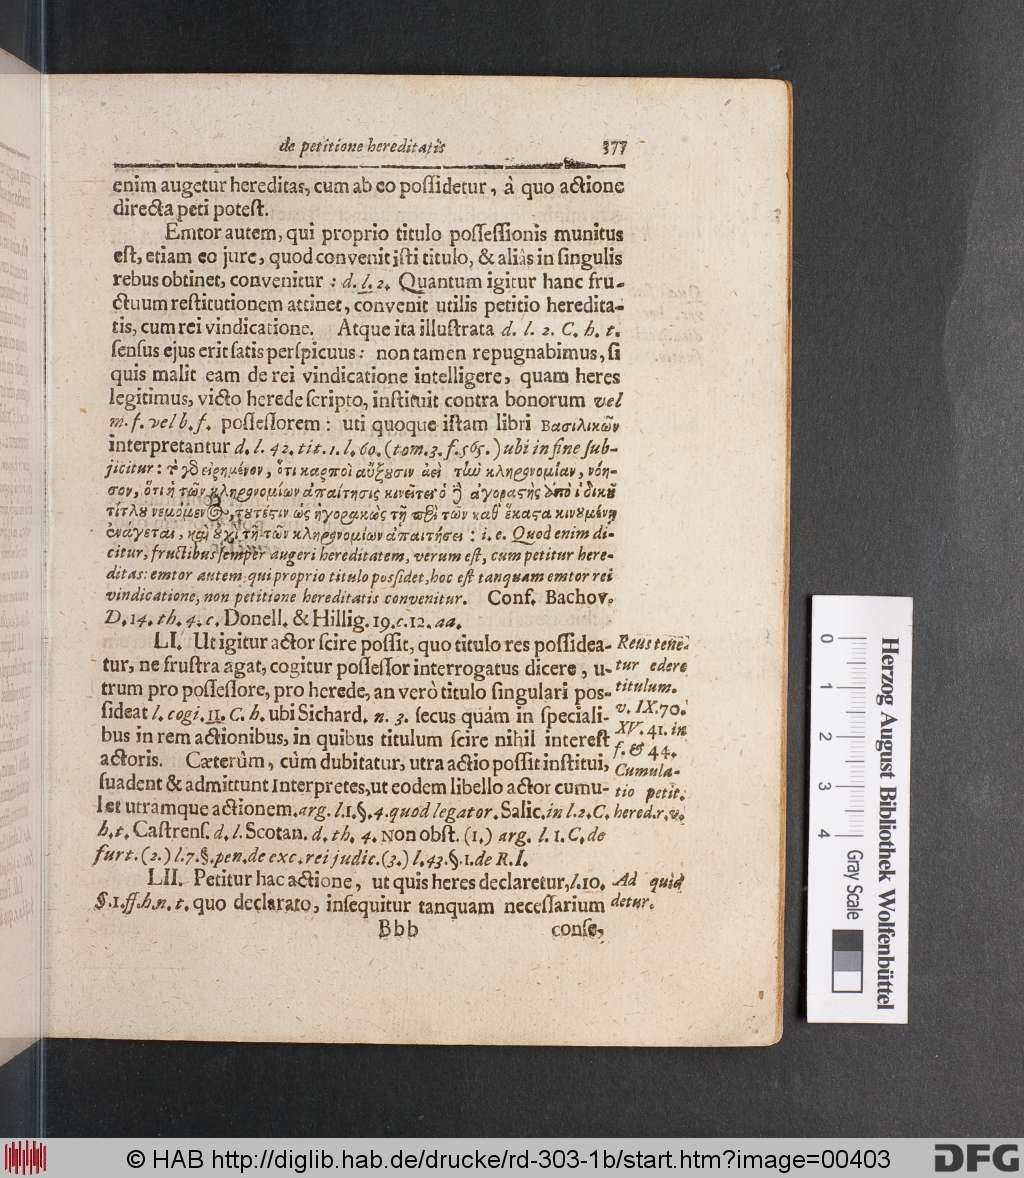 de petitione hereditatis 377
enim augetur hereditas, cum ab eo poſſidetur, à quo actione
directa peti poteſt.
Emtor autem, qui proprio titulo poſſeſſionis munitus
eſt, etiam eo jure, quod convenit iſti titulo, & aliàs in ſingulis
rebus obtinet, convenitur : d. l. 2. Quantum igitur hanc fru-
ctuum reſtitutionem attinet, convenit utilis petitio heredita-
tis, cum rei vindicatione. Atque ita illuſtrata d. l. 2. C. h. t.
ſenſus ejus erit ſatis perſpicuus: non tamen repugnabimus, ſi
quis malit eam de rei vindicatione intelligere, quam heres
legitimus, victo herede ſcripto, inſtituit contra bonorum vel
m. f. vel b. f. poſſeſſorem: uti quoque iſtam libri Βασιλικῶν
interpretantur d. l. 42. tit. 1. l. 60. (tom. 3. f. 565.) ubi in fine ſub-
jicitur: τὸ γὸ εἰρημένον, ὅτι καρποὶ αὔξουσιν ἀεὶ τὼ κληρονομίαν, νόη-
σον, ὅτι ἡ τῶν κληρονομίων ἀπαίτησις κινεῖται ὁ ἀγοραςὴς ἀπὸ ἰδικ
τίτλου νεμόμενος, τουτέςιν ὡς ἠγορακὼς τῇ περὶ τῶν καθ' ἕκαςα κινουμένῃ
ἐνάγεται, καὶ οὐχὶ τῇ τῶν κληρονομίων ἀπαιτήσει : i. e. Quod enim di-
citur, fructibus ſemper augeri hereditatem, verum eſt, cum petitur here-
ditas: emtor autem qui proprio titulo poſſidet, hoc eſt tanquam emtor rei
vindicatione, non petitione hereditatis convenitur. Conf. Bachov.
D. 14. th. 4. c. Donell. & Hillig. 19. c. 12. aa.
LI. Ut igitur actor ſcire poſſit, quo titulo res poſſidea- Reus tene-
tur, ne fruſtra agat, cogitur poſſeſſor interrogatus dicere, u- tur edere
trum pro poſſeſſore, pro herede, an verò titulo ſingulari poſ- titulum.
ſideat l. cogi. 11. C. h. ubi Sichard. n. 3. ſecus quàm in ſpeciali- v. IX. 70.
bus in rem actionibus, in quibus titulum ſcire nihil intereſt XV. 41. in
actoris. Cæterùm, cùm dubitatur, utra actio poſſit inſtitui, f. & 44.
ſuadent & admittunt Interpretes, ut eodem libello actor cumu- Cumula-
let utramque actionem. arg. l. 1. §. 4. quod legator. Salic. in l. 2. C. tio petit.
h. t. Caſtrenſ. d. l. Scotan. d. th. 4. Non obſt. (1.) arg. l. 1. C. de hered. r. v.
furt. (2.) l. 7. §. pen. de exc. rei judic. (3.) l. 43. §. 1. de R. I.
LII. Petitur hac actione, ut quis heres declaretur, l. 10. Ad quid
§. 1. ff. h. n. t. quo declarato, inſequitur tanquam neceſſarium detur.
Bbb conſe-
0 1 2 3 4
Gray Scale
Herzog August Bibliothek Wolfenbüttel
© HAB http://diglib.hab.de/drucke/rd-303-1b/start.htm?image=00403
DFG